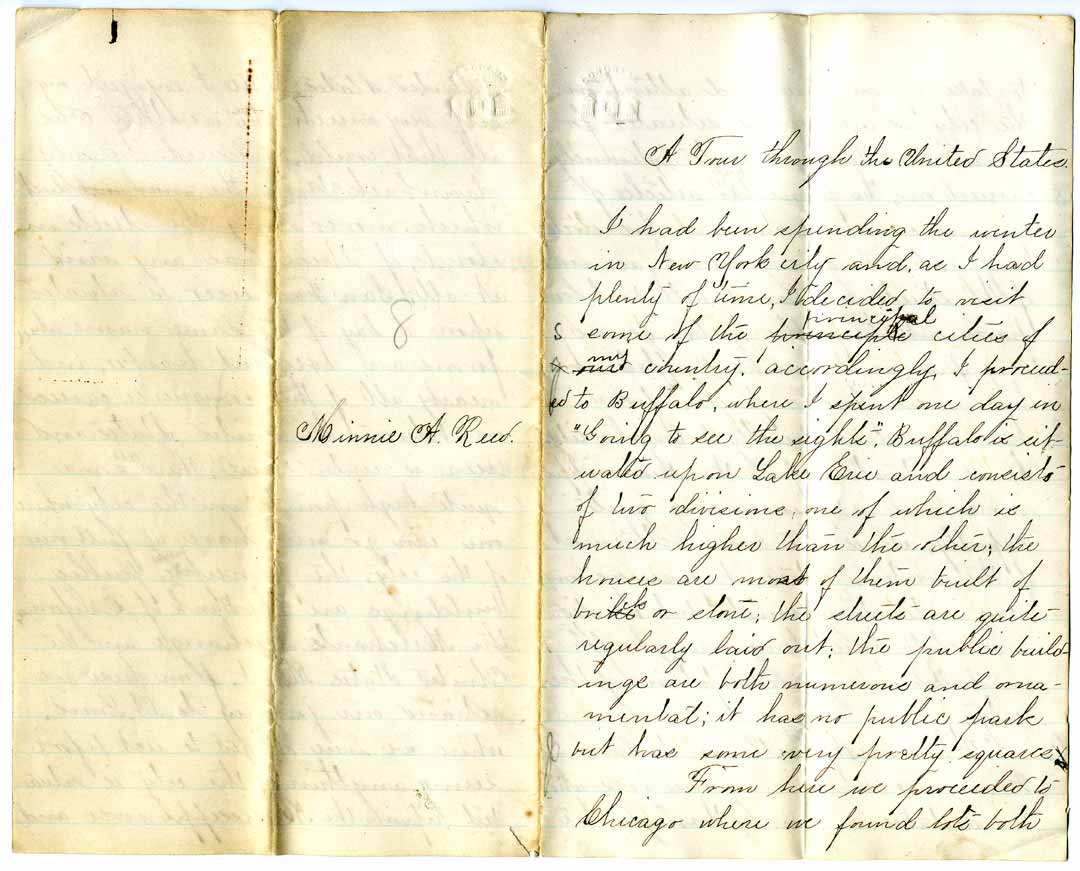 8
Minnie A. Reed.
A Tour through the United States.
I had been spending the winter
in New York city and, as I had
plenty of time, I decided to visit
principal
S some of the principle cities of
x our my country. accordingly I proceed-
ed to Buffalo, where I spent one day in
"Going to see the sights". Buffalo is sit-
uated upon Lake Erie and consists
of two divisions, one of which is
much higher than the other; the
houses are most of them built of
bricks or stone; the streets are quite
regularly laid out; the public build-
ings are both numerous and orna-
mental; it has no public park
but has some very pretty squares
From here we proceeded to
Chicago where we found lots both